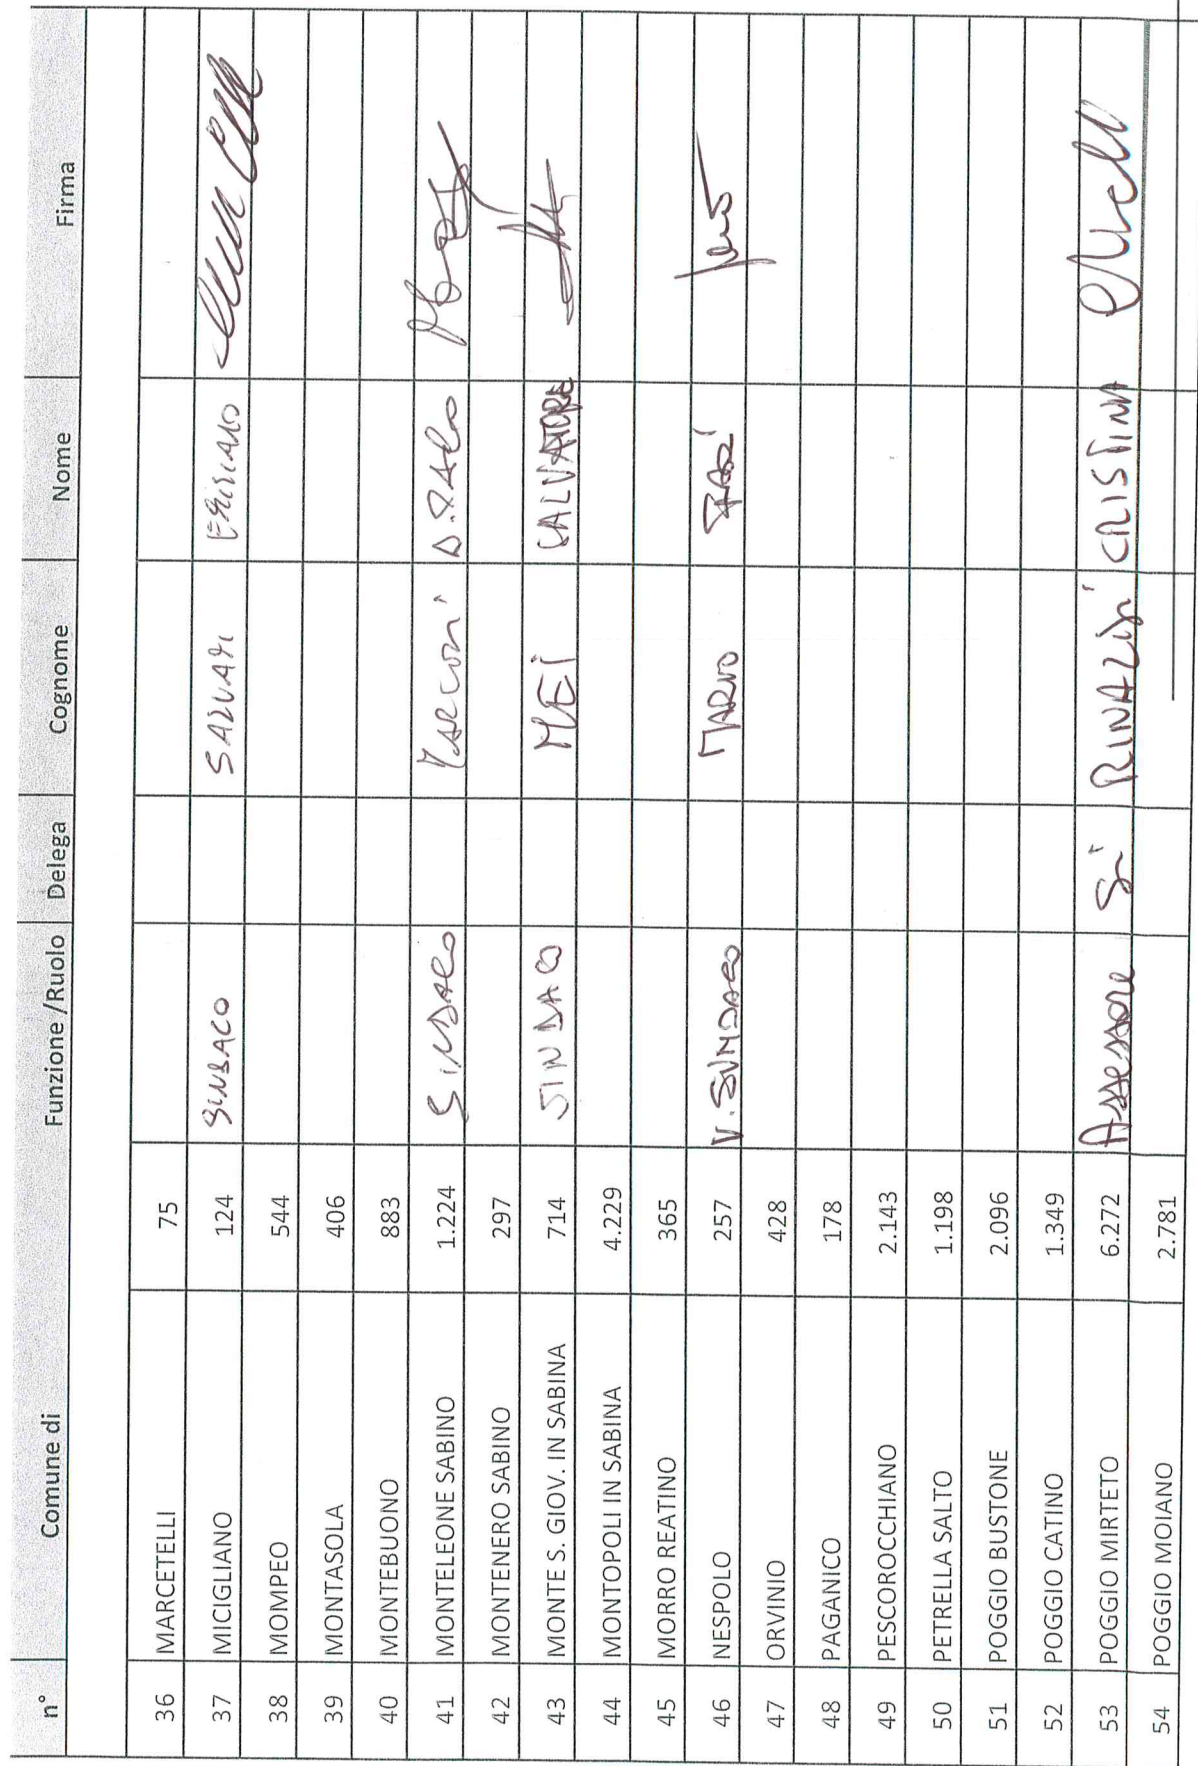 n° Comune di Funzione /Ruolo Delega Cognome Nome Firma
36 MARCETELLI 75
37 MICIGLIANO 124 SINDACO SALVATI EMILIANO
38 MOMPEO 544
39 MONTASOLA 406
40 MONTEBUONO 883
41 MONTELEONE SABINO 1.224 SINDACO MARCONI
42 MONTENERO SABINO 297
43 MONTE S. GIOV. IN SABINA 714 SINDACO MEI SALVATORE
44 MONTOPOLI IN SABINA 4.229
45 MORRO REATINO 365
46 NESPOLO 257 V. SINDACO MARIO
47 ORVINIO 428
48 PAGANICO 178
49 PESCOROCCHIANO 2.143
50 PETRELLA SALTO 1.198
51 POGGIO BUSTONE 2.096
52 POGGIO CATINO 1.349
53 POGGIO MIRTETO 6.272 Assessore Sì RINALDI CRISTINA
54 POGGIO MOIANO 2.781